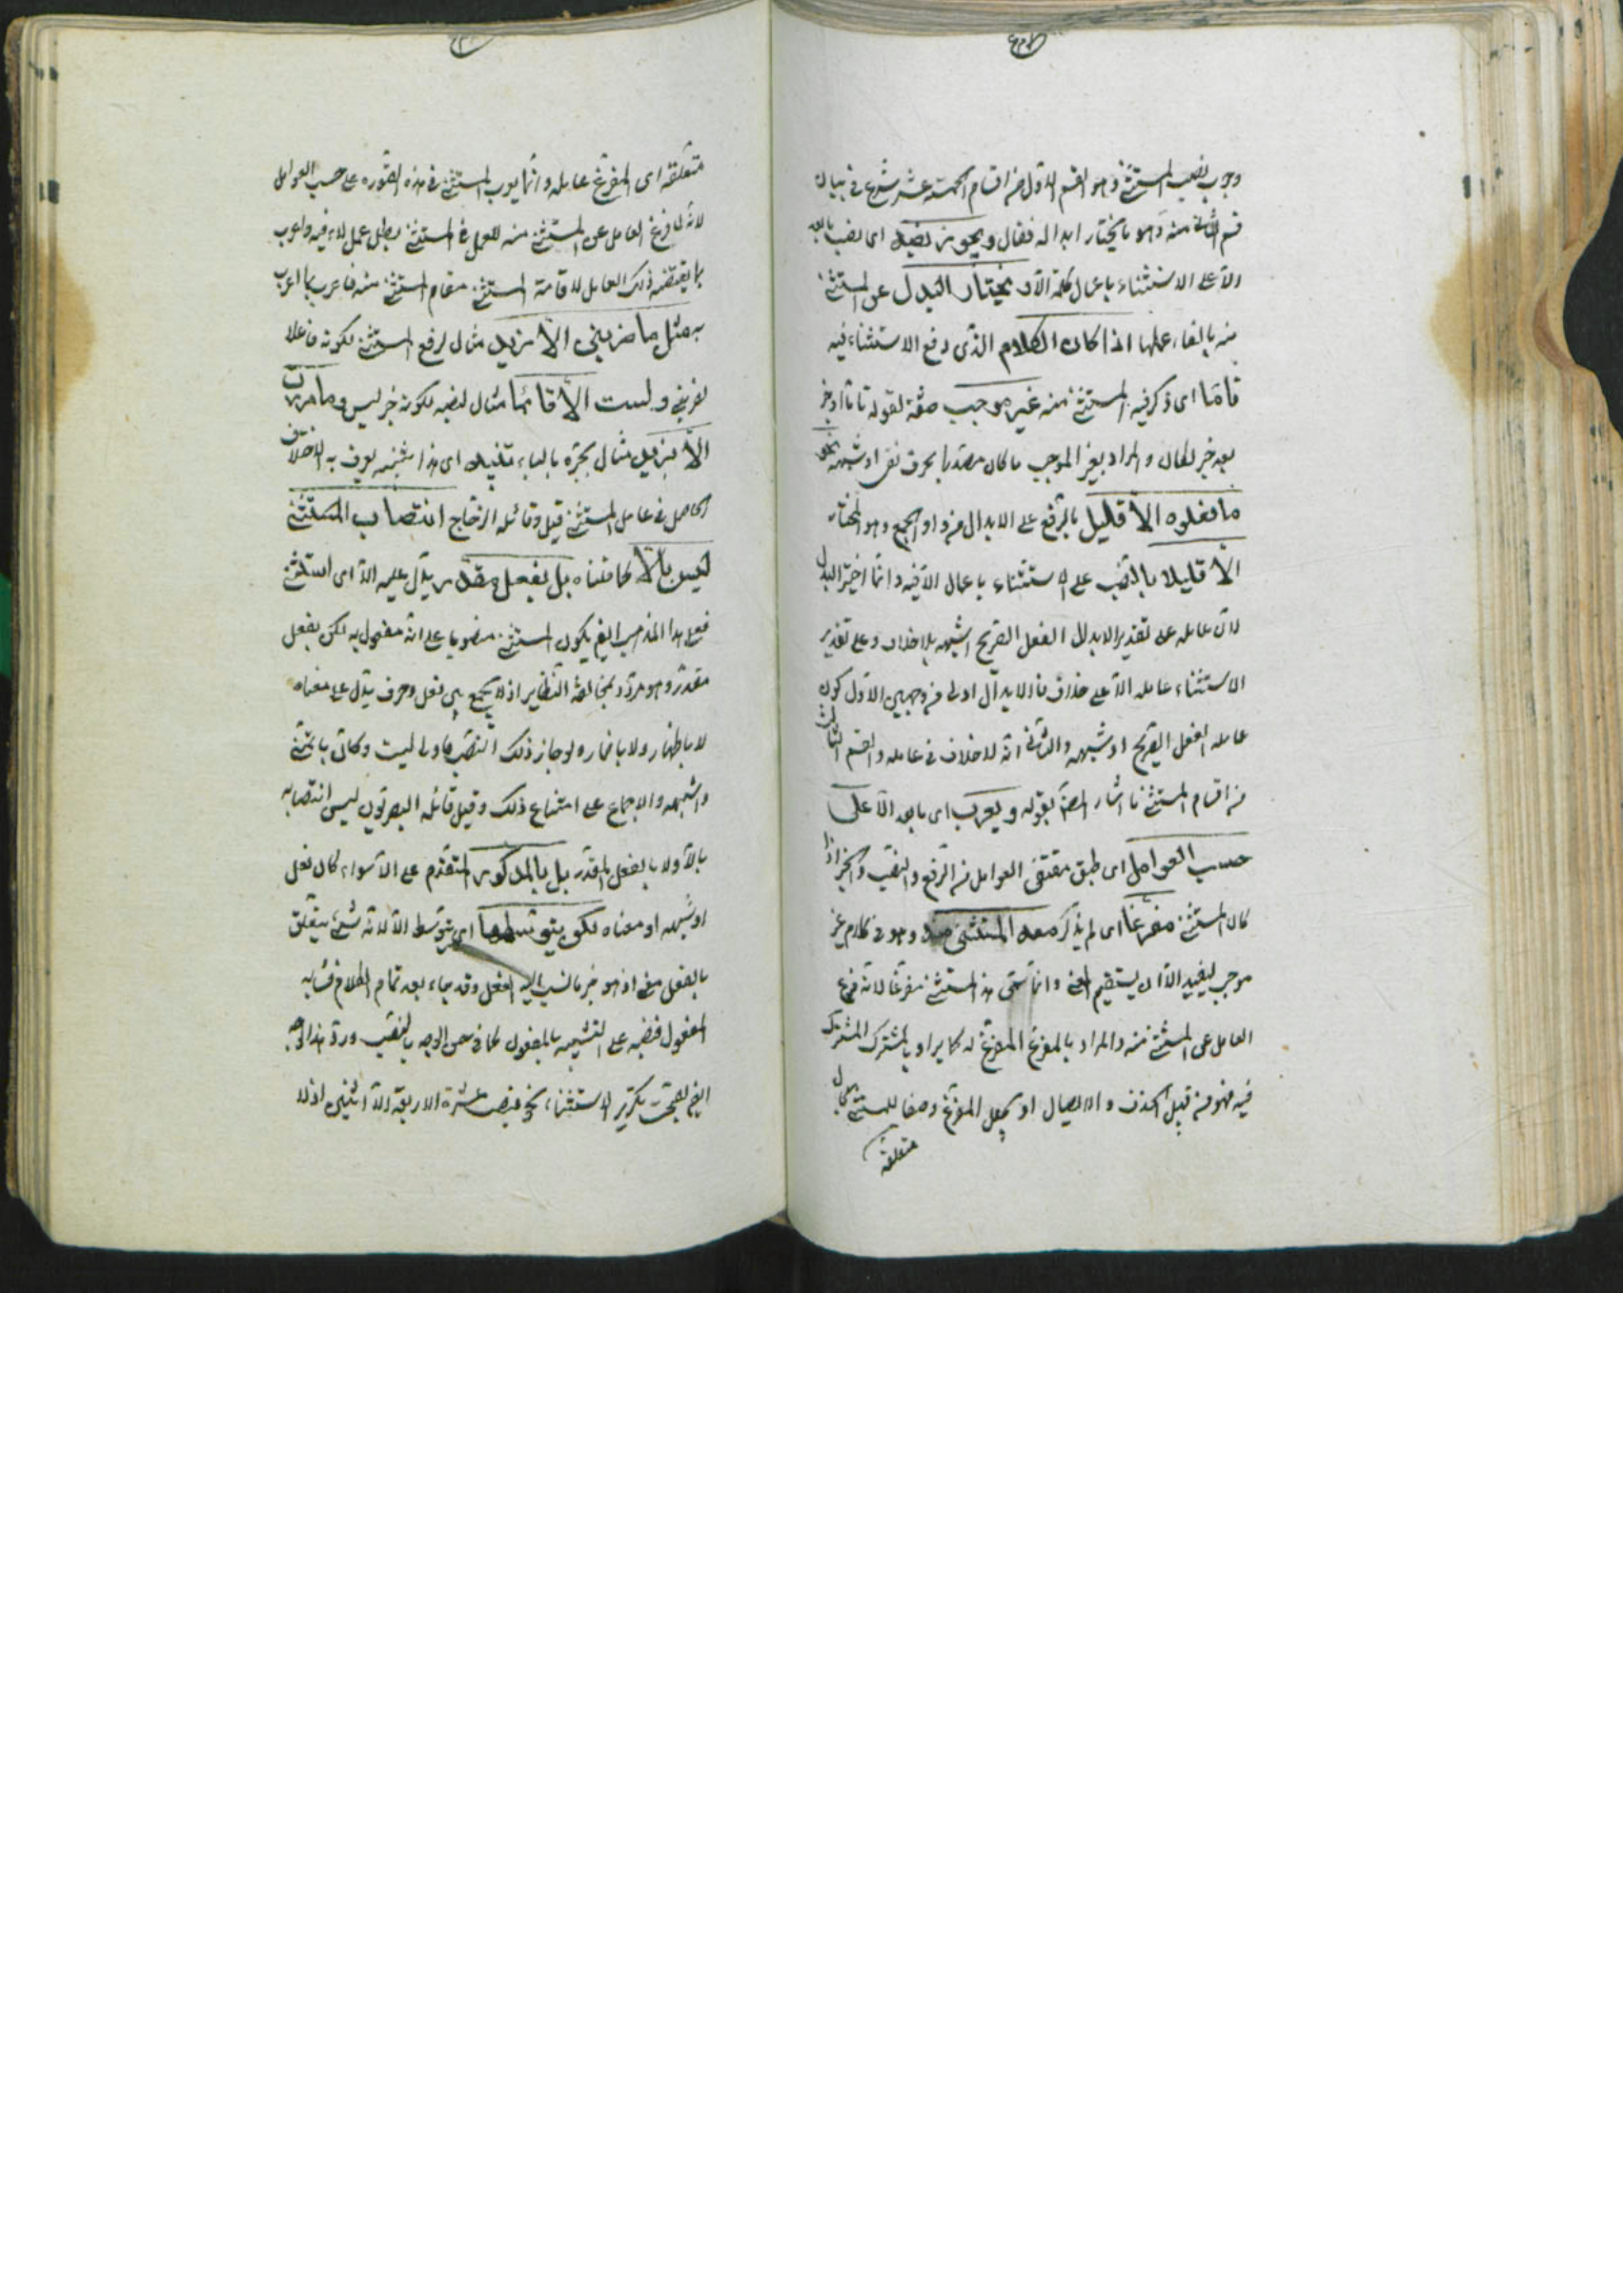 وجوب نصب المستثنى وهو القسم الاول من اقسام الخمسة عشر شرع في بيان
قسم الثاني منه وهو ما يختار ابداله فقال ويجوز نصبه اى نصب ما بعد
الا على الاستثناء باعمال كلمة الا ويختار البدل عن المستثنى
منه بالغاء عملها اذا كان الكلام الذى وقع الاستثناء فيه
تاما اى ذكر فيه المستثنى منه غير موجب صفة لقوله تاما او خبر
بعد خبر لكان والمراد بغير الموجب ما كان مصدرا بحرف نفى او شبهه نحو
ما فعلوه الا قليل بالرفع على الابدال من واو الجمع وهو المختار
الا قليلا بالنصب على الاستثناء باعمال الا فيه وانما اختير البدل
لان عامله على تقدير الابدال الفعل الصريح او شبهه بلا خلاف وعلى تقدير
الاستثناء عامله الا على خلاف فالابدال اولى من وجهين الاول كون
عامله الفعل الصريح او شبهه والثانى انه لا خلاف فى عامله والقسم الثالث
من اقسام المستثنى ما اشار المص بقوله ويعرب اى ما بعد الا على
حسب العوامل اى طبق مقتضى العوامل من الرفع والنصب والجر اذا
كان المستثنى مفرغا اى لم يذكر معه المستثنى منه وهو فى كلام غير
موجب ليفيد الا ان يستقيم المعنى وانما سمى هذا المستثنى مفرغا لانه فرغ
العامل عن المستثنى منه والمراد بالمفرغ المفرغ له كما يراد بالمشترك المشترك
فيه فهو من قبيل الحذف والايصال او يجعل المفرغ وصفا للمستثنى بحال
متعلقه
متعلقه اى المفرغ عامله وانما يعرب المستثنى فى هذه الصورة على حسب العوامل
لانه لما فرغ العامل عن المستثنى منه للعمل فى المستثنى بطل عمل الا فيه واعرب
بما يقتضيه ذلك العامل لاقامة المستثنى مقام المستثنى منه فاعرب بما اعرب
به مثل ما ضربنى الا زيد مثال لرفع المستثنى لكونه فاعلا
لضربنى ولست الا قائما مثال لنصبه لكونه خبر ليس وما مررت
الا بزيد مثال لجره بالباء تنبيه اى هذا تنبيه يعرف به الاختلاف
الحاصل فى عامل المستثنى قيل وقائله الزجاج انتصاب المستثنى
ليس بالا كما قلناه بل بفعل مقدر يدل عليه الا اى استثنى
فعلى هذا المذهب ايضا يكون المستثنى منصوبا على انه مفعول به لكن بفعل
مقدر وهو مردود بمخالفة النظاير اذ لا يجمع بين فعل وحرف يدل على معناه
لا باظهار ولا باضماره لو جاز ذلك النصب ما ولى ليت وكان باتمنى
واشبهه والاجماع على امتناع ذلك وقيل قائله البصريون ليس انتصابه
بالا ولا بالفعل المقدر بل بالمذكور المتقدم على الا سواء كان فعل
او شبهه او معناه لكن بتوسطها اى بتوسط الا لانه شئ يتعلق
بالفعل معنى اذ هو جزء مما نسب اليه الفعل وقد جاء بعد تمام الكلام فشابه
المفعول فنصبه على التشبيه بالمفعول كما فى حسن الوجه بالنصب ورد هذا الوجه
ايضا بصحة تكرير الاستثناء نحو قبضت عشرة الا اربعة الا اثنين اذ لا